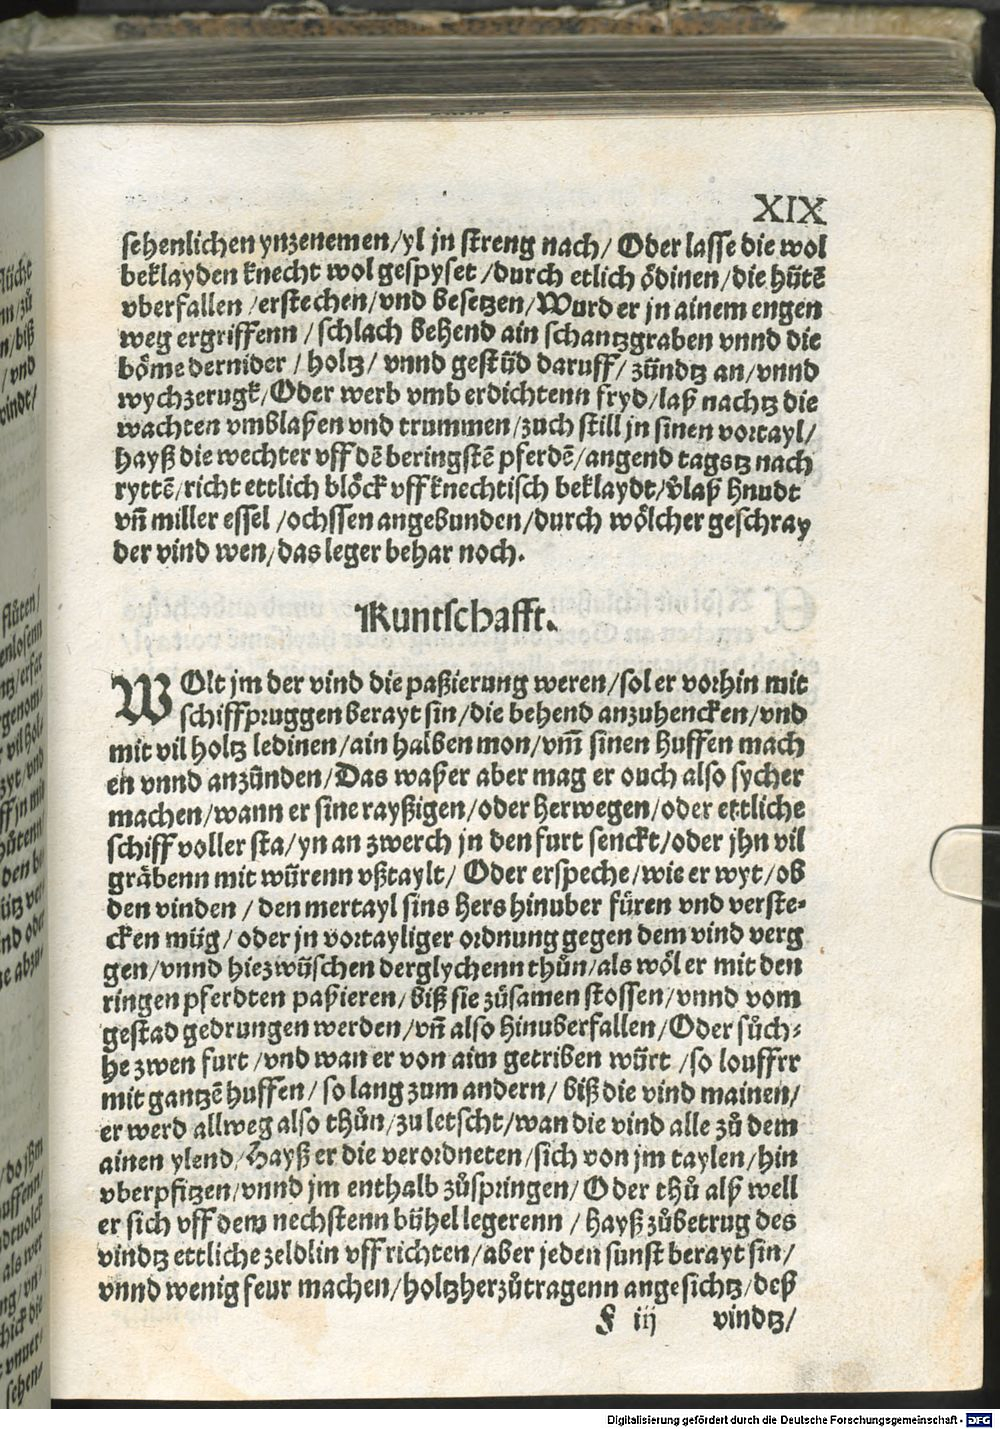 XIX
sehenlichen ynzenemen/yl jn streng nach/ Oder lasse die wol
beklayden knecht wol gespyset /durch etlich ödinen/die hütē
vberfallen /erstechen/vnd besetzen/Wurd er jn ainem engen
weg ergriffenn /schlach behend ain schantzgraben vnnd die
böme dernider / holtz/ vnnd gestüd daruff/ zündtz an/vnnd
wychzerugk/Oder werb vmb erdichtenn fryd/laß nachtz die
wachten vmblaßen vnd trummen/zuch still jn sinen vortayl/
hayß die wechter vff dē beringstē pferdē/angend tagstz nach
ryttē/richt ettlich blöck vff knechtisch beklaydt/v̊laß hnudt
vn̄ miller essel /ochssen angebunden/durch wölcher geschray
der vind wen/das leger behar noch.
Kuntschafft.
WOlt jm der vind die paßierung weren/sol er vorhin mit
schiffpruggen berayt sin/die behend anzuhencken/vnd
mit vil holtz ledinen/ain halben mon/vm̄ sinen huffen mach
en vnnd anzünden/Das waßer aber mag er ouch also sycher
machen/wann er sine rayßigen/oder herwegen/oder ettliche
schiff voller sta/yn an zwerch jn den furt senckt/oder jhn vil
gräbenn mit würenn vßtaylt/ Oder erspeche/wie er wyt/ob
den vinden / den mertayl sins hers hinuber füren vnd verste-
cken müg/ oder jn vortayliger ordnung gegen dem vind verg
gen/vnnd hiezwüschen derglychenn thůn/als wöl er mit den
ringen pferdten paßieren/ biß sie zůsamen stossen/vnnd vom
gestad gedrungen werden/vn̄ also hinuberfallen/Oder sůch-
he zwen furt /vnd wan er von aim getriben würt /so louffrr
mit gantzē huffen/ so lang zum andern/ biß die vind mainen/
er werd allweg also thůn/zu letscht/wan die vind alle zů dem
ainen ylend/Hayß er die verordneten/sich von jm taylen/hin
vberpfitzen/vnnd jm enthalb zůspringen/ Oder thů alß well
er sich vff dem nechstenn bühel legerenn / hayß zůbetrug des
vindtz ettliche zeldlin vffrichten/aber jeden sunst berayt sin/
vnnd wenig feur machen/holtzherzůtragenn angesichtz/deß
F iij vindtz/
Digitalisierung gefördert durch die Deutsche Forschungsgemeinschaft - DFG